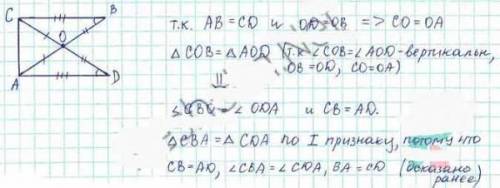 C
B
O
A
D
т.к. AB = CD и OD = OB => CO = OA
△COB = △AOD (т.к. ∠COB = ∠AOD - вертикальн,
OB = OD, CO = OA)
⇓
∠ODA и CB = AD.
△CBA = △CDA по I признаку, потому что
CB = AD, ∠CBA = ∠CDA, BA = CD (доказано
ранее)